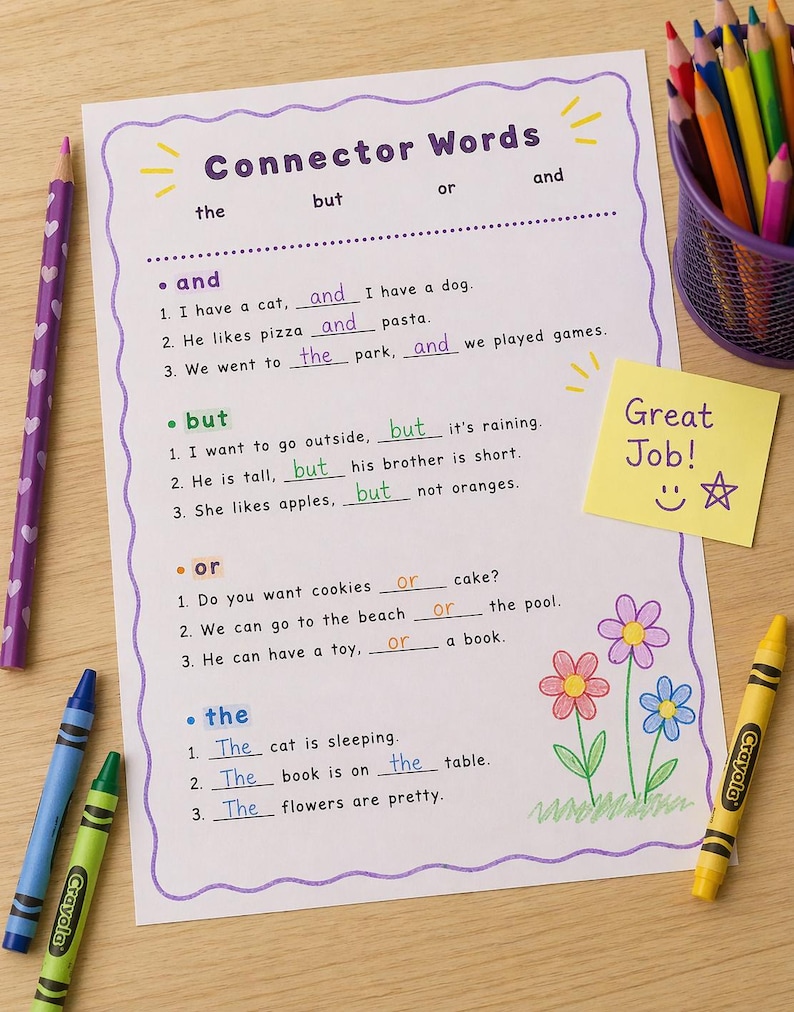 Connector Words
the but or and
• and
1. I have a cat, and I have a dog.
2. He likes pizza and pasta.
3. We went to the park, and we played games.
• but
1. I want to go outside, but it's raining.
2. He is tall, but his brother is short.
3. She likes apples, but not oranges.
Great
Job!
• or
1. Do you want cookies or cake?
2. We can go to the beach or the pool.
3. He can have a toy, or a book.
• the
1. The cat is sleeping.
2. The book is on the table.
3. The flowers are pretty.
Crayola
Crayola